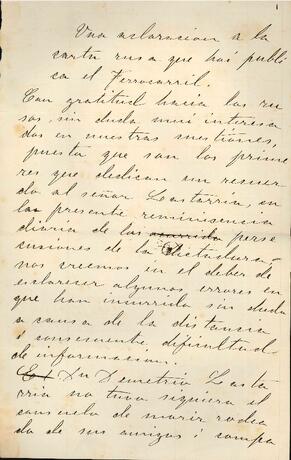 Una aclaracion a la
carta rusa que hoi publi
ca el Ferrocarril.
Con gratitud hacia los ru
sos, sin duda mui interesa
dos en nuestras cuestiones,
puesto que son los prime
ros que dedican un recuer
do al señor Lastarria, en
la presente reminiscencia
diaria de las perse
cusiones de la Dictadura
nos creemos en el deber de
esclarecer algunos errores en
que han incurrido sin duda
a causa de la distancia
i consecuente dificultad
de informacion.
Dn Demetrio Lasta
rria no tuvo siquiera el
consuelo de morir rodea
do de sus amigos i compa